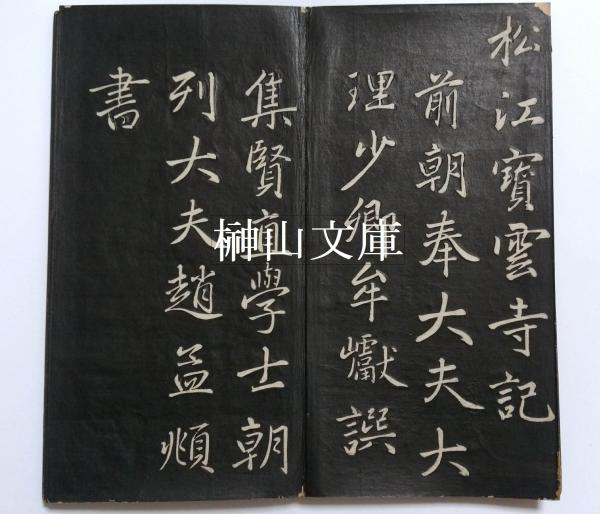 松江寶雲寺記
前朝奉大夫大
理少卿牟巘譔
集賢直學士朝
列大夫趙孟頫
書
榊山文庫